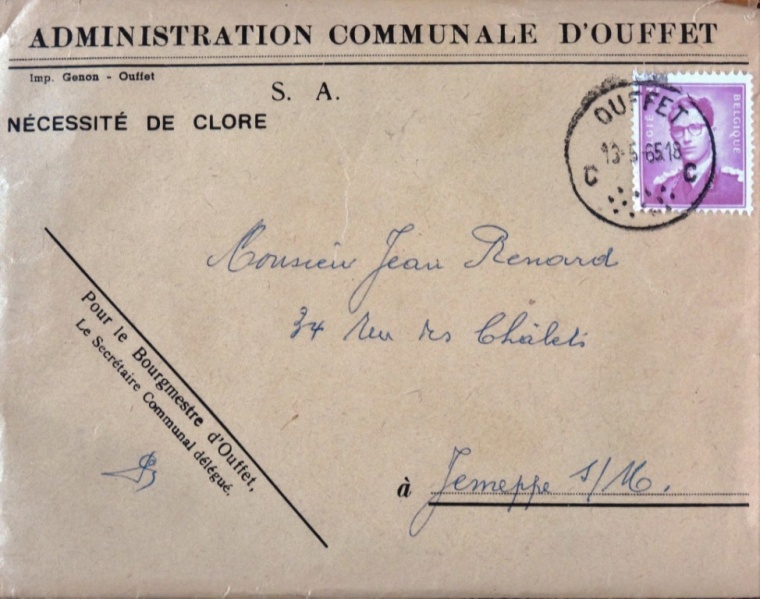 ADMINISTRATION COMMUNALE D'OUFFET
Imp. Genon - Ouffet
S. A.
NÉCESSITÉ DE CLORE
OUFFET
13-5-65.18
C C
BELGIQUE
Monsieur Jean Renard
34 Rue des Châlets
Pour le Bourgmestre d'Ouffet,
Le Secrétaire Communal délégué.
à Jemeppe s/M.